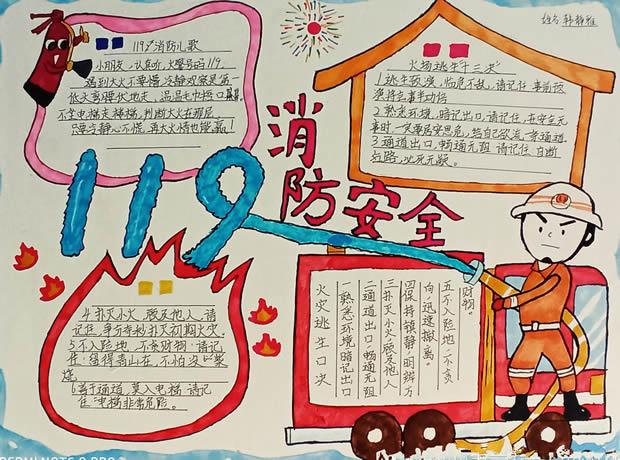 姓名:韩静雅
119消防儿歌
小朋友,认真听,火警号码119.
遇到大火不要慌,冷静观察是第一
低头弯腰伏地走,湿湿毛巾捂口鼻
不坐电梯走楼梯,判断大火在哪层
只要冷静心不慌,再大火情也能赢!
火场逃生十三决
1逃生预演,临危不乱,请记住:事前预
演将会事半功倍
2.熟悉环境,暗记出口,请记住,在安全无
事时,一定要居安思危,给自己欲流一条通道.
3.通道出口,畅通无阻 请记住:自断
后路,必死无疑.
消防安全
119
4.扑灭小火,惠及他人,请
记住,争分夺秒,扑灭初期火灾。
5.不入险地,不贪财物,请记
住:留得青山在,不怕没柴
烧
6善于通道,莫入电梯,请记
住:电梯非常危险。
火灾逃生口决
一熟悉环境暗记出口
二通道出口,畅通无阻
三扑灭小火,惠及他人
四保持镇静,明辨方
向,迅速撤离。
五不入险地,不贪
财物。
REDMI NOTE 9 PRO